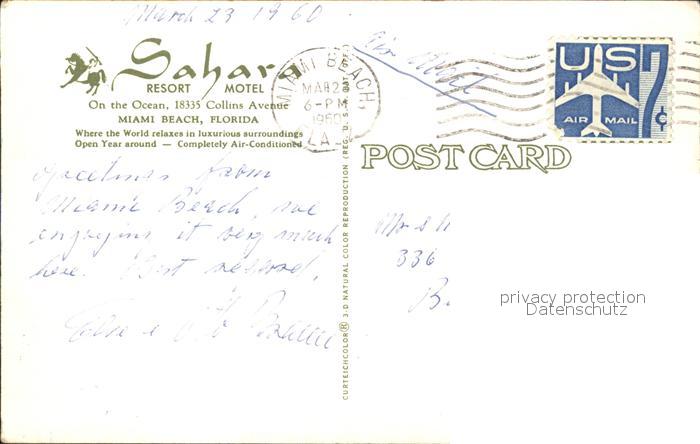 March 23 1960
Air Mail
Sahara
RESORT MOTEL
On the Ocean, 18335 Collins Avenue
MIAMI BEACH, FLORIDA
Where the World relaxes in luxurious surroundings
Open Year around — Completely Air-Conditioned
MIAMI BEACH,
6-PM
1960
FLA.
US
7¢
AIR MAIL
POST CARD
Greetings from
Miami Beach, we
enjoying it very much
here. Best
336
B.
CURTEICHCOLOR® 3-D NATURAL COLOR REPRODUCTION (REG. U.S.A. PAT. OFF.)
privacy protection
Datenschutz